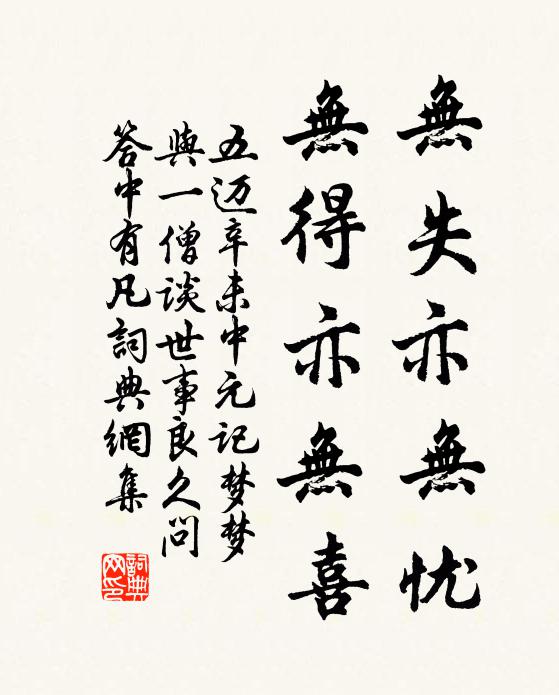 無失亦無忧
無得亦無喜
五迈辛未中元记梦梦
與一僧谈世事良久问
答中有凡詞典網集
詞典网印